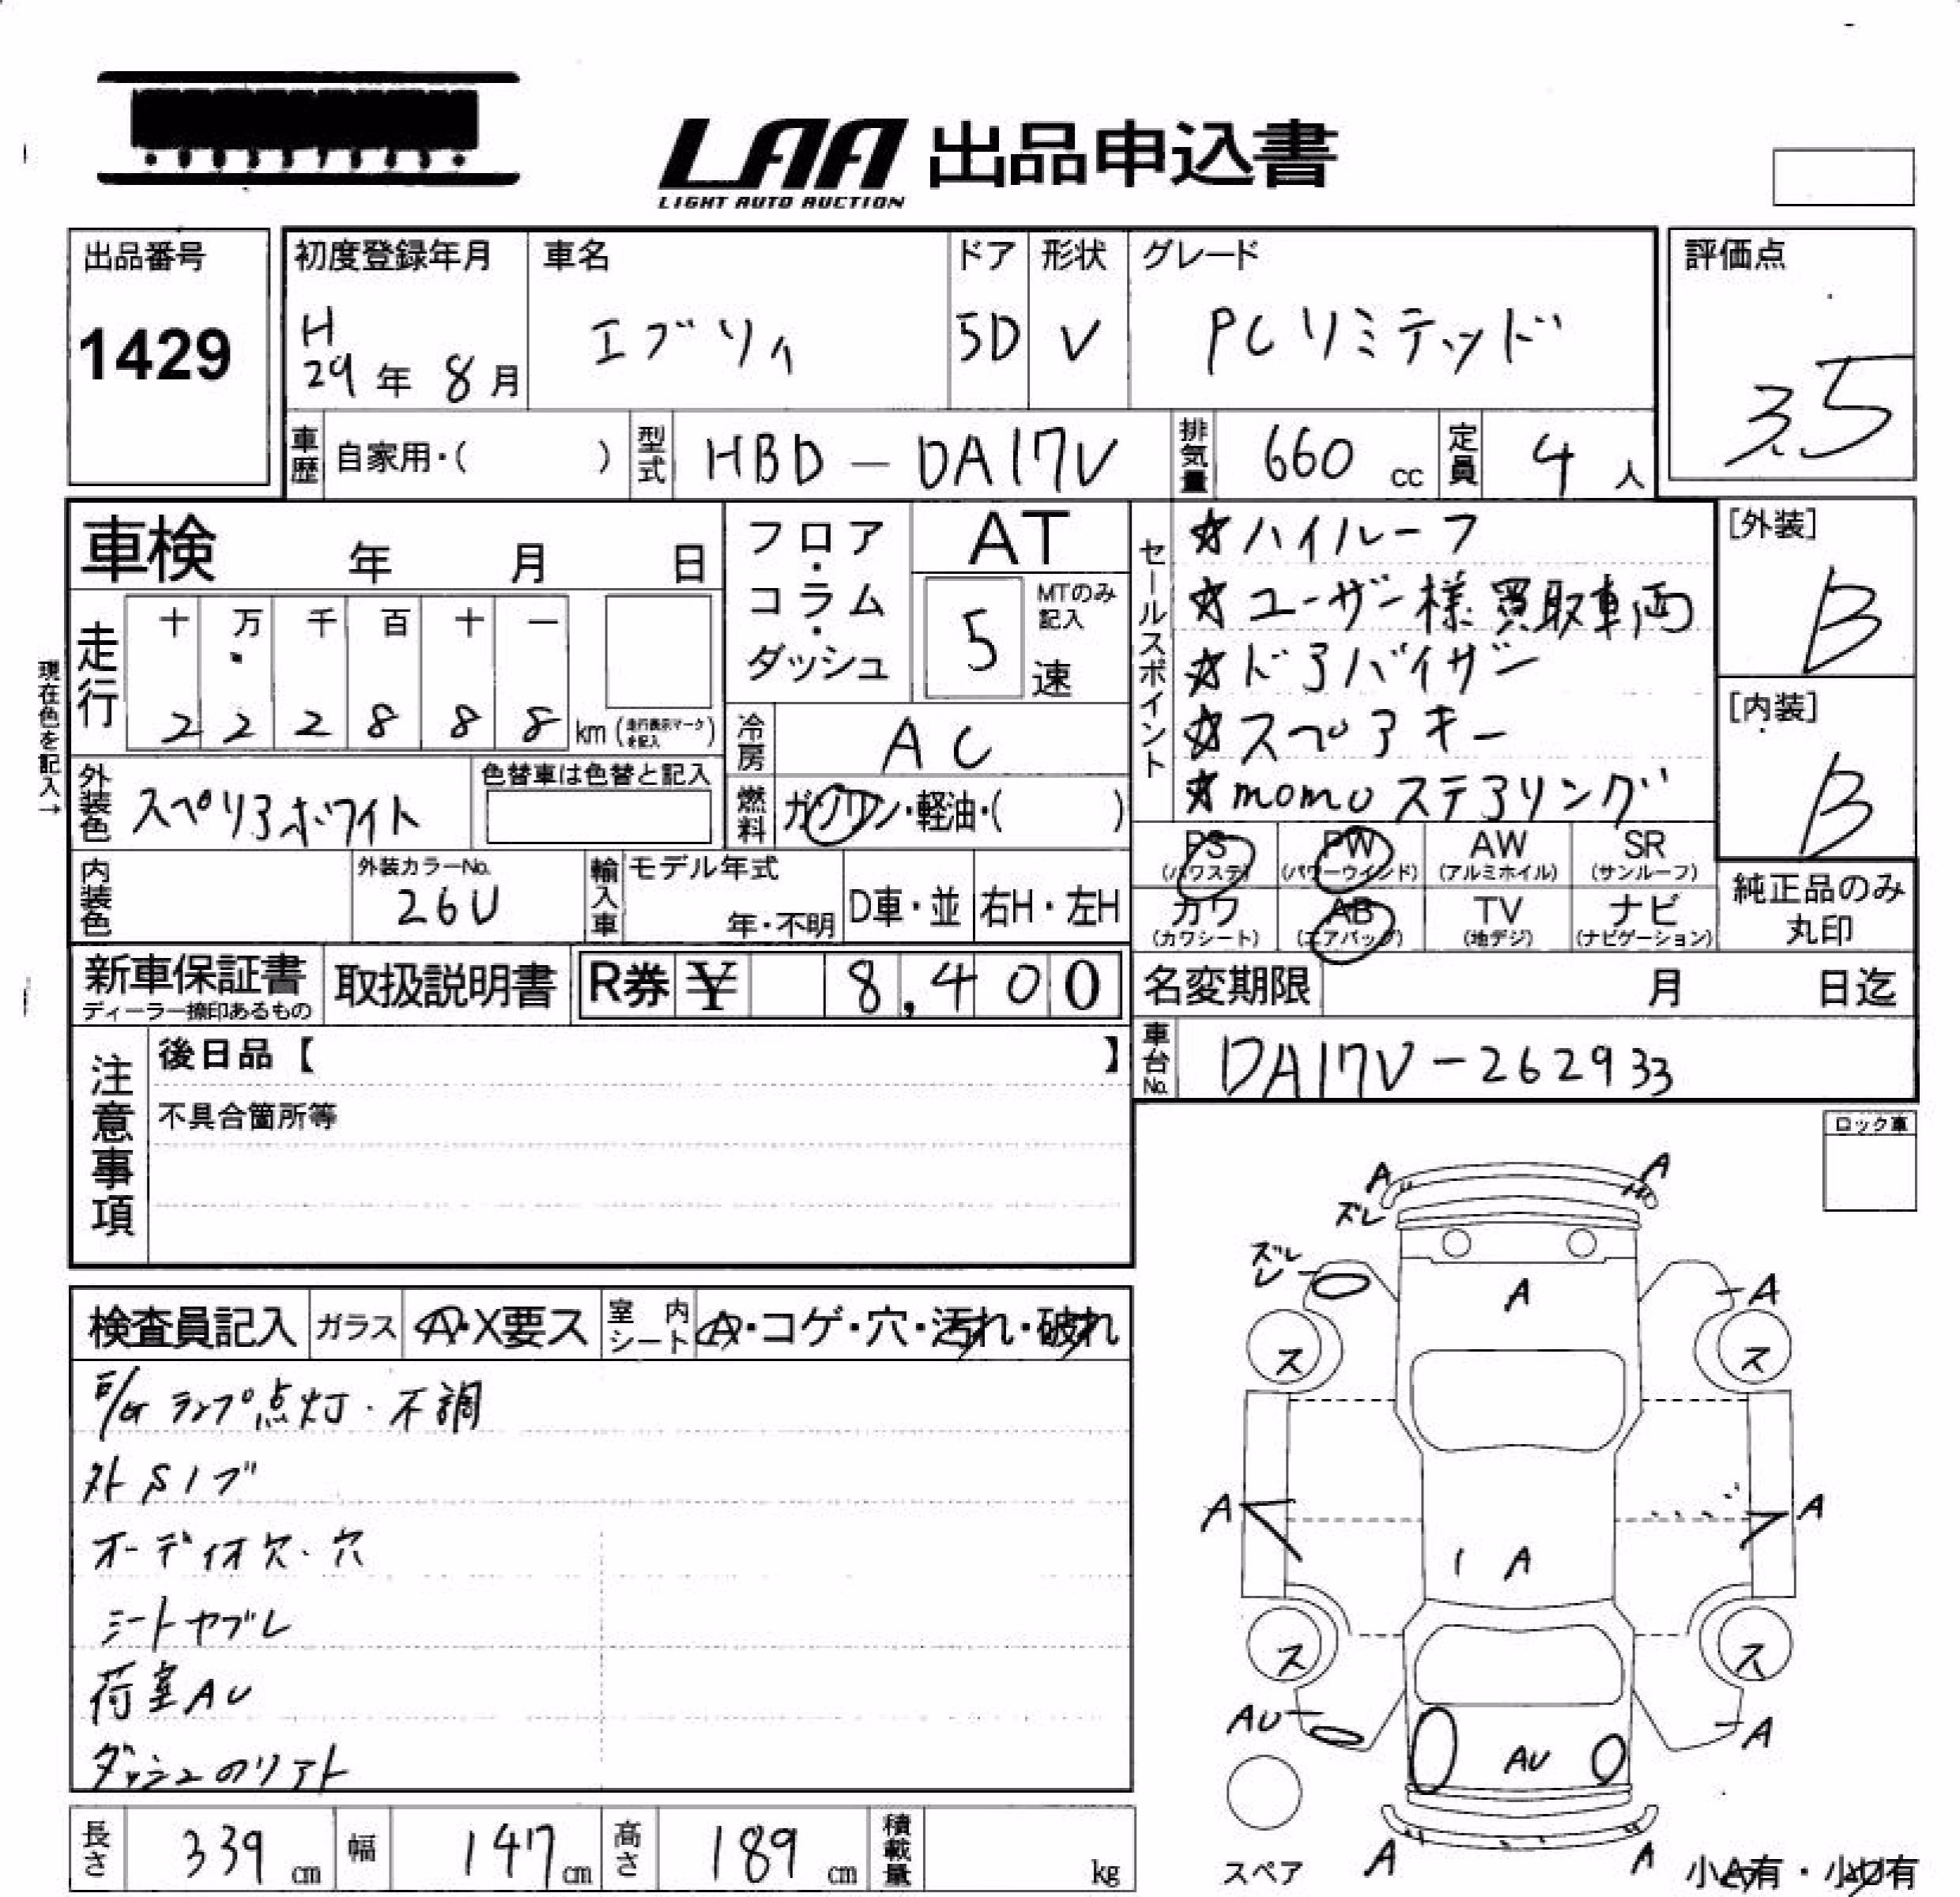 LAA 出品申込書
LIGHT AUTO AUCTION
出品番号
1429
初度登録年月
H
29年 8月
車名
エブリィ
ドア
5D
形状
V
グレード
PCリミテッド
評価点
3.5
車歴 自家用・( )
型式 HBD-DA17V
排気量 660 cc
定員 4 人
車検 年 月 日
現在色を記入→
走行
十 万 千 百 十 一
2 2 2 8 8 8 km (走行表示マークを記入)
外装色 スペリアホワイト
色替車は色替と記入
内装色
外装カラーNo.
26U
フロア・コラム・ダッシュ
AT
5 速
MTのみ記入
冷房 AC
燃料 ガソリン・軽油・( )
輸入車 モデル年式
年・不明
D車・並
右H・左H
セールスポイント
☆ハイルーフ
☆ユーザー様買取車両
☆ドアバイザー
☆スペアキー
☆momoステアリング
[外装]
B
[内装]
B
PS PW AW SR
(パワステ) (パワーウインド) (アルミホイル) (サンルーフ)
カワ AB TV ナビ
(カワシート) (エアバッグ) (地デジ) (ナビゲーション)
純正品のみ
丸印
新車保証書
ディーラー捺印あるもの
取扱説明書
R券 ¥ 8,400
名変期限 月 日迄
車台No. DA17V-262933
注意事項
後日品【 】
不具合箇所等
ロック車
検査員記入
ガラス A・X要ス
室内シート A・コゲ・穴・汚れ・破れ
E/Gランプ点灯・不調
オーディオ欠・穴
シートヤブレ
荷室AU
A A
ズレ
ズレ
A
A
ス ス
A A
A
ス ス
AU
AU
A
A A
スペア
小A有・小U有
長さ 339 cm
幅 147 cm
高さ 189 cm
積載量 kg